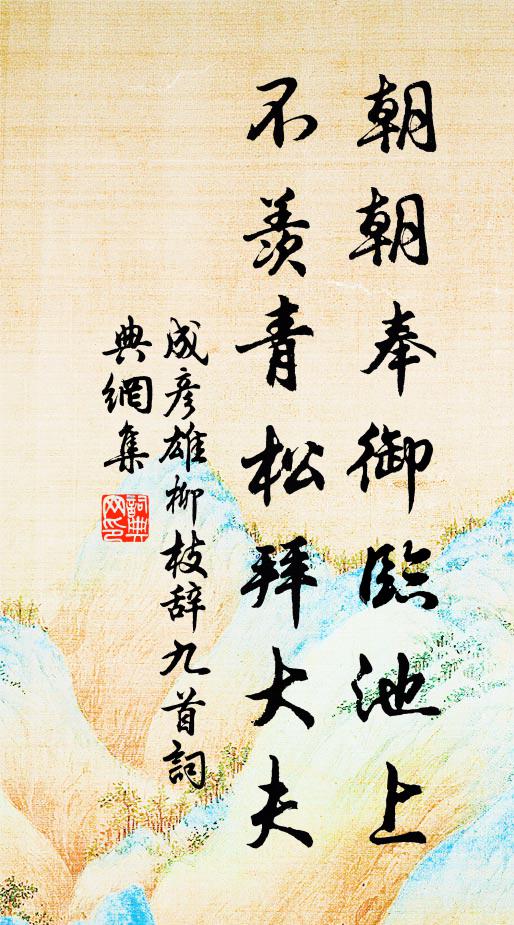 朝朝奉御臨池上
不羨青松拜大夫
成彦雄柳枝辞九首詞
典網集
詞典